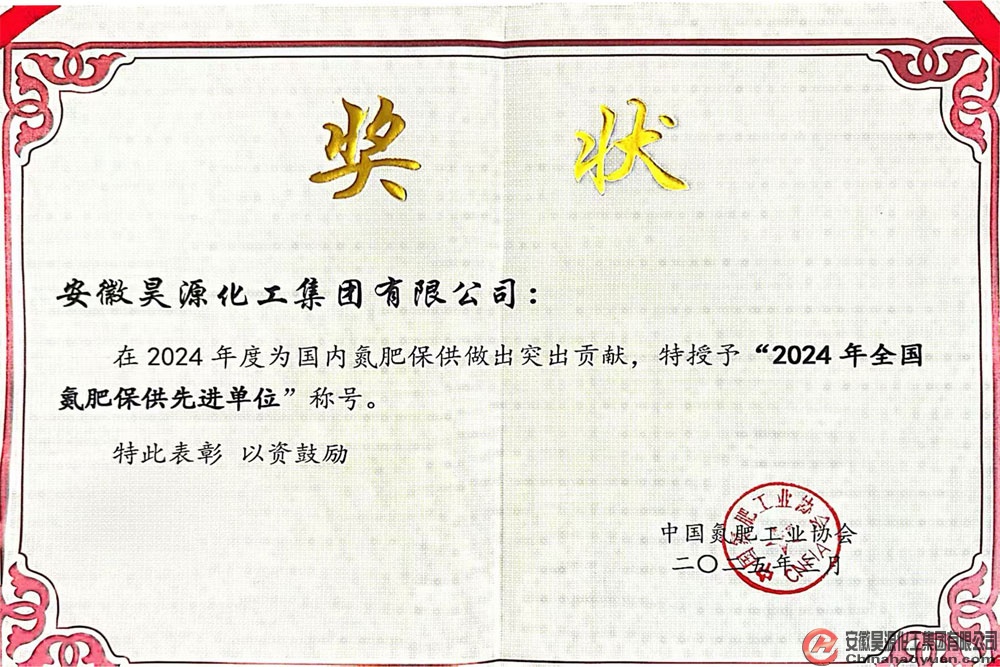 奖 状
安徽昊源化工集团有限公司：
在 2024 年度为国内氮肥保供做出突出贡献，特授予“2024 年全国
氮肥保供先进单位”称号。
特此表彰 以资鼓励
中国氮肥工业协会
二〇二五年二月
中国氮肥工业协会
CNFIA
安徽昊源化工集团有限公司
Chinahaoyuan.com